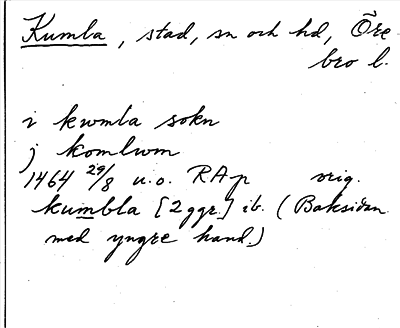 Kumla, stad, sn och hd, Öre
bro l.
i kwmla sokn
j komlwm
1464 29/8 u.o. RAp orig.
kumbla [2 ggr.] ib. (Baksidan
med yngre hand.)